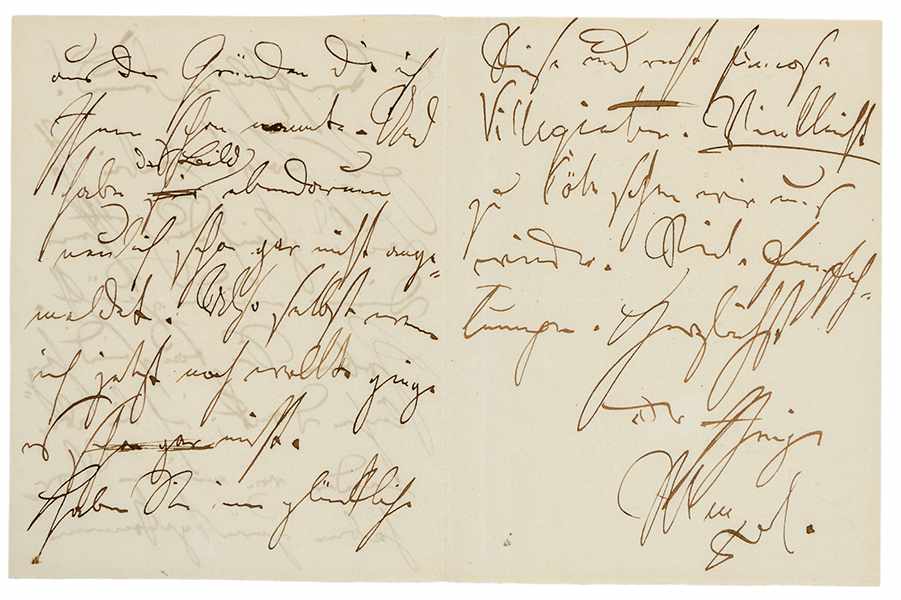 aus den Gründen die ich
Ihnen schon nannte. Und
das Bild
habe ebendarum
neulich schon gar nicht ange=
meldet. Also selbst wenn
ich jetzt noch wollte ginge
es schon gar nicht.
Haben Sie eine glückliche
Reise und recht famose
Villegiatur. Vielleicht
zu Cöln sehen wir uns
wieder. Viel. Empfeh=
lungen. Herzlichst
der Ihrige